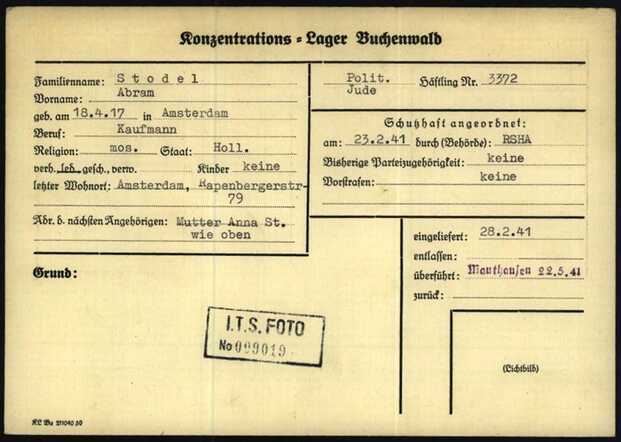 Konzentrations-Lager Buchenwald
Familienname: Stodel
Vorname: Abram
geb. am 18.4.17 in Amsterdam
Beruf: Kaufmann
Religion: mos. Staat: Holl.
verh. led. gesch., verw. Kinder keine
letzter Wohnort: Amsterdam, Rapenbergerstr-
79
Adr. d. nächsten Angehörigen: Mutter Anna St.
wie oben
Polit.
Jude
Häftling Nr. 3372
Schutzhaft angeordnet:
am: 23.2.41 durch (Behörde): RSHA
Bisherige Parteizugehörigkeit: keine
Vorstrafen: keine
eingeliefert: 28.2.41
entlassen:
überführt: Mauthausen 22.5.41
zurück:
Grund:
I.T.S. FOTO
No 009019
(Lichtbild)
KL Bu